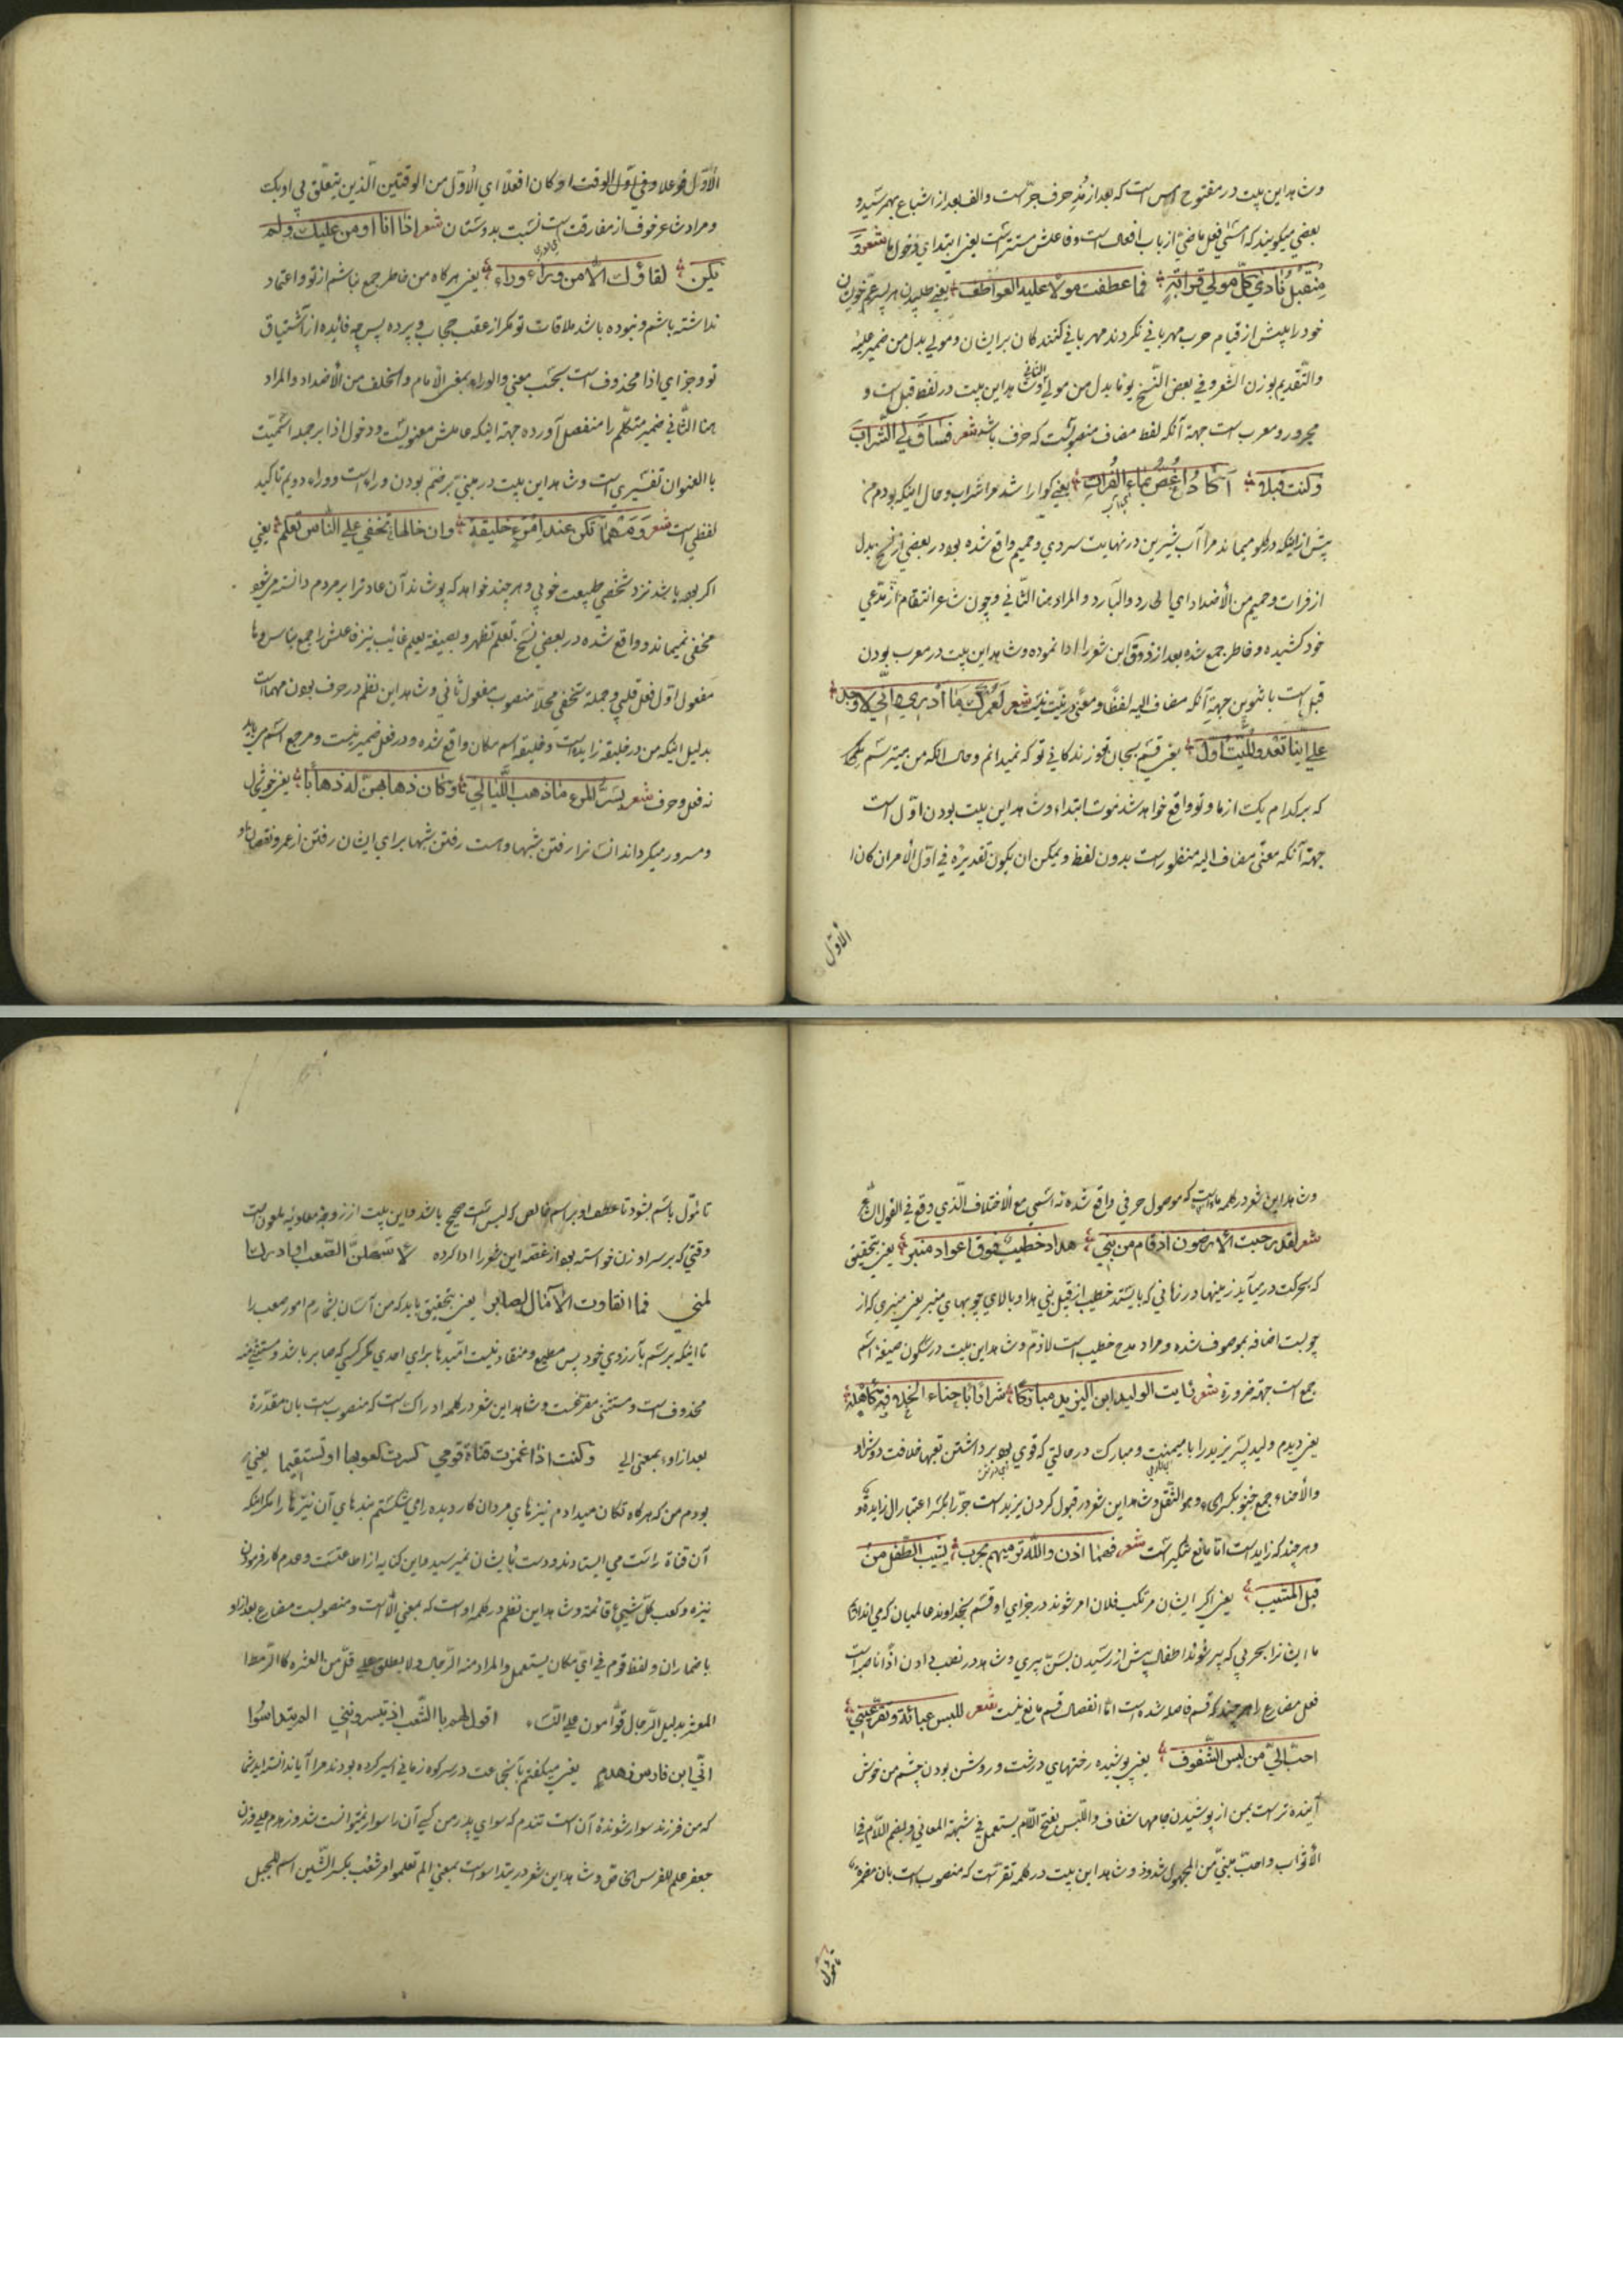 وشاهد این بیت در مفتوح امس است که بعد از مذ حرف جرّ است والف بعد از اشباع بهم رسیده و
بعضی میکویند که امسی فعل ماضی از باب افعال است وفاعلش مستتر است یعنی ابتدای دخول ما شعر و
مِنْ قبلِ نادی کلّ مولی قرابةٍ فما عطفت مولا علیه العواطف یعنی طلبیدن هر پسر عمّ خویشان
خود را پیش از قیام حرب مهربانی نکردند مهربانی کنند کان بر ایشان ومولی بدل من ضمیر علیه
والتّقدیم بوزن الشّعر وفی بعض النّسخ یوما بدل من مولی الثانی وشاهد این بیت در لفظ قبل است و
مجرور ومعرب است جهة آنکه لفظ مضاف منصویست که حذف باشد شعر فساق لی الشّراب
وکنت قبلاً اکاد اغص بماء الفرات یعنی کوارا شد مرا شراب وحال اینکه بودم من
پیش از اینکه در کلو میماند مرا آب شیرین در نهایت سردی وحمیم واقع شده بود در بعضی از نسخ بدل
از فرات وحمیم من الأضداد ای الحارد والبارد والمراد هنا الثّانی وچون شاعر انتقام از مدّعی
خود کشیده وخاطر جمع شده بعد از ذوق این شعر را ادا نموده وشاهد این بیت در معرب بودن
قبل است با تنوین جهة آنکه مضاف الیه لفظًا ومعنی در نیّت نیست شعر لعمرک ما أدری وإنّی لاوجل
علی ایّنا تعدو المنیّة اوّل یعنی قسم بجان عزیز زندکانی تو که نمیدانم وحال انکه من میترسم
که بر کدام یک از ما وتو واقع خواهد شد موت ابتداء وشاهد این بیت بودن اوّل است
جهة آنکه معنی مضاف الیه منظور است بدون لفظ ویمکن ان یکون تقدیره فی اوّل الأمران کان ا
الاوّل
الأوّل فوعلا وفی اوّل الوقت او کان افعلا ای الأوّل من الوقتین الّذین یتعلّق بی او بک
ومراد شاعر خوف از مفارقت است نسبت بدوستان شعر اذا انا اومن علیک ولم
یکن لقاؤک الّا من وراء وراء یعنی هرکاه من خاطر جمع نباشم از تو واعتماد
نداشته باشم ونبوده باشد ملاقات تو مکر از عقب حجاب وپرده پس چه فائده از اشتیاق
تو وجزای اذا محذوف است بحسب معنی والوراء بمعنی الأمام والخلف من الأضداد والمراد
هنا الثّانی ضمیر متکلّم را منفصل آورده جهة اینکه عاملش معنویست ودخول اذا بر جمله اسمیّت
باالعنوان تفسیری است وشاهد این بیت در مبنی بر ضم بودن وراء است ووراء دویم تاکید
لفظی است شعر ومهما تکن عند امرء خلیقة وان خالها تخفی علی الناس تعلم یعنی
اکر بوده باشد نزد شخصی طبیعت خوبی وهر چند خواهد که پوشاند آن عادت را بر مردم دانسته میشود
مخفی نمیماند وواقع شده در بعضی نسخ تعلم تظهر وبصیغه یعلم غائب نیز فاعلش راجع بناس وها
مفعول اوّل فعل قلبی وجمله تخفی محلّا منصوب مفعول ثانی وشاهد این نظم در حرف بودن مهما است
بدلیل اینکه من در خلیقه زایده است وخلیقه اسم مکان واقع شده ودر فعل ضمیر نیست ومرجع اسم می باید
نه فعل وحرف شعر یسرّ المرء ما ذهب اللّیالی وکان ذهابهنّ له ذهابًا یعنی خوشحال
ومسرور میکرداند انسانرا رفتن شبها وهست رفتن شبها برای ایشان رفتن از عمر ونقصان او
وشاهد این شعر در کلمه ما است که موصول حرفی واقع شده نه اسمی مع الأختلاف الّذی وقع فی القول
شعر لقد رحبت الأرضون اذ قام من بنی هداد خطیبٌ فوق اعواد منبر یعنی بتحقیق
که بحرکت در میآید زمینها در زمانی که بایستد خطیب از قبل بنی هداد بالای چوبهای منبر یعنی منبری که از
چوبست اضافه بموصوف شده ومراد مدح خطیب است لازم وشاهد این بیت در سکون صیغه اسم
جمع است جهة ضرورة شعر رایت الولید ابن الیزید مبارکا شرادا باحناء الخلافة کاهله
یعنی دیدم ولید پسر یزید را با میمنت ومبارک در حالتی که قوی بود برداشتن تعبها خلافت دوش او
والأحناء جمع حنو بکسر الحاء وهو الثّقل وشاهد این شعر در قبول کردن یزید است جرّ را بکسر اعتبار ال زایده و
وهر چند که زاید است امّا مانع شکیر است شعر فهما اذن والله نرمیهم بحرب یشیب الطّفل من
قبل المشیب یعنی اکر ایشان مرتکب فلان امر شوند در جزای او قسم بخداوند عالمیان که می اندازیم
ما ایشانرا بحربی که پیر شوند اطفال پیش از رسیدن بسنّ پیری وشاهد در نصب دادن اذًا ناصبه است
فعل مضارع را هر چند که قسم فاصله شده است امّا انفصال قسم مانع نیست شعر للبس عبائة وتقرّ عینی
احبّ الیّ من لبس الشّفوف یعنی پوشیده رختهای درشت وروشن بودن چشم من خوش
آینده تر است بمن از پوشیدن جامها شفاف واللّبس بفتح اللّام یستعمل فی شبهة المعانی وبضم اللّام فی
الأثواب واحبّ مبنیّ من المجهول شذوذ وشاهد این بیت در کلمه تقرّ است که منصوب است بان مضمره
تأوّل
تا مؤول باسم بشود تا عطف او بر اسم خالص که لبس است صحیح باشد واین بیت از زوجه معاویه ملعون است
وقتی که بر سر او زن خواسته بود از غصّه این شعر را ادا کرده لاستسهلنّ الصّعب او ادرک
المنی فما انقادت الآمال الا لصابر یعنی بتحقیق باید که من آسان بشمارم امور صعب را
تا اینکه برسم بآرزوی خود پس مطیع ومنقاد نیست امّیدها برای احدی مکر کسی که صابر باشد ومستثنی منه
محذوف است ومستثنی مفرّغست وشاهد این شعر در کلمه ادرک است که منصوب است بان مقدّرة
بعد از او بمعنی الی وکنت اذا غمزت قناة قومی کسرت کعوبها او تستقیما یعنی
بودم من که هرکاه تکان میدادم نیزهای مردان کار دیده را می شکستم بندهای آن نیزها را مکر اینکه
آن قناة راست می ایستادند ودست بایشان نمیرسید واین کنایه از اطاعتست وعدم کارفرمودن
نیزه وکعب کلّ شییٍ قائمة وشاهد این نظم در کلمه او است که بمعنی الّا است ومنصوبست مضارع بعد از او
باضمار ان ولفظ قوم فی ای مکان یستعمل والمراد منه الرّجال ولا یطلق علی قلّ من العشره کالرّهط
المعشر بدلیل الرّجال قوّامون علی النّساء اقول لهم باالشّعب اذ تیسروننی الم یتعاسوا
انّی ابن فارس زهدم یعنی میکفتم بانجماعت در سر کوه زمانی اسیر کرده بودند مرا آیا ندانسته اید شما
که من فرزند سوار شوندهٔ آن است تندم که سوای پدر من کسی آن را سوار نمیتوانست شد وزهدم علی وزن
جعفر علم للفرس الخاص وشاهد این شعر در یتداسوا است بمعنی الم تعلموا وامر شعب بکسر الشّین اسم للجبل